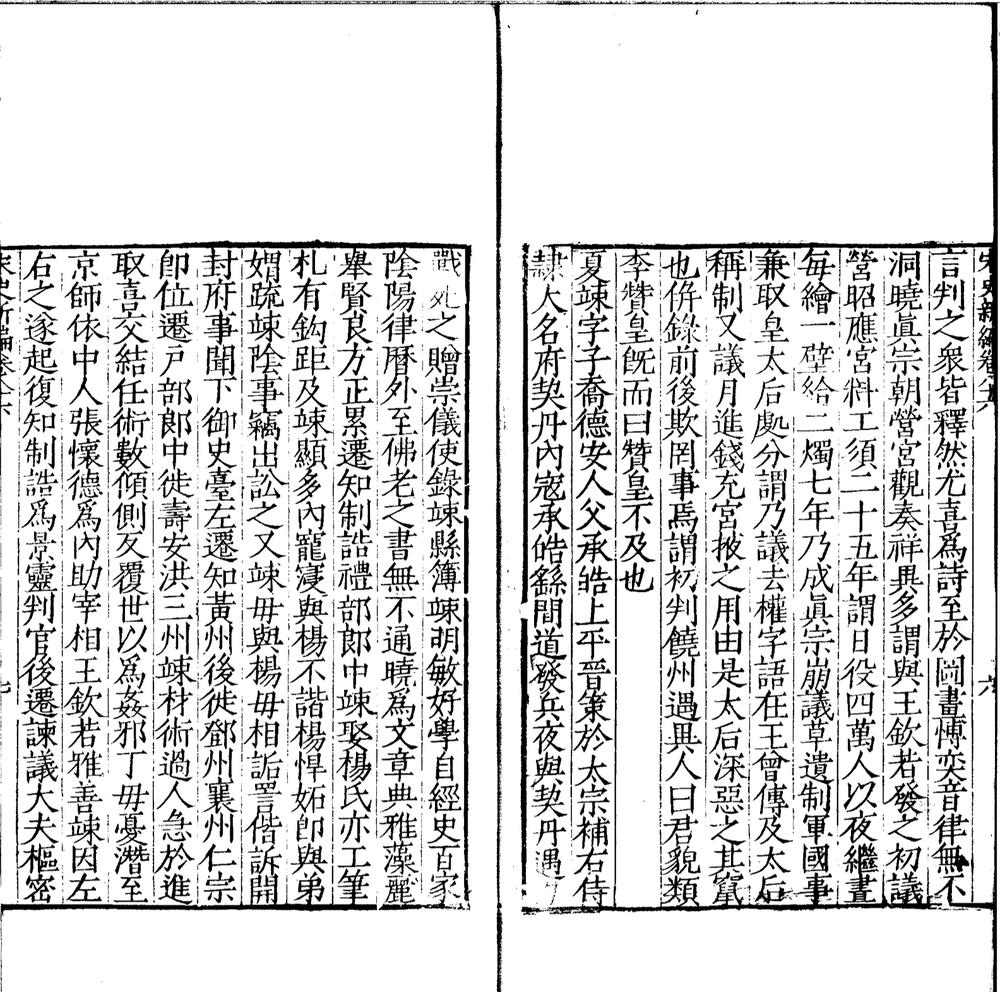 宋史新編卷八十六 六
言判之衆皆釋然尤喜爲詩至於圖畫愽奕音律無不
洞曉眞宗朝營宮觀奏祥異多謂與王欽若發之初議
營昭應宮料工須二十五年謂日役四萬人以夜繼晝
每繪一壁給二燭七年乃成眞宗崩議草遺制軍國事
兼取皇太后處分謂乃議去權字語在王曾傳及太后
稱制又議月進錢充宮掖之用由是太后深惡之其竄
也倂錄前後欺罔事焉謂初判饒州遇異人曰君貌類
李贊皇旣而曰贊皇不及也
夏竦字子喬德安人父承皓上平晉策於太宗補右侍
隷大名府契丹內寇承皓繇間道發兵夜與契丹遇
戰死之贈崇儀使錄竦縣簿竦明敏好學自經史百家
陰陽律曆外至佛老之書無不通曉爲文章典雅藻麗
舉賢良方正累遷知制誥禮部郎中竦娶楊氏亦工筆
札有鈎距及竦顯多內寵寖與楊不諧楊悍妬卽與弟
媦疏竦陰事竊出訟之又竦毋與楊毋相詬詈偕訴開
封府事聞下御史臺左遷知黃州後徙鄧州襄州仁宗
卽位遷戶部郎中徙壽安洪三州竦材術過人急於進
取喜交結任術數傾側反覆世以爲姦邪丁毋憂潛至
京師依中人張懷德爲內助宰相王欽若雅善竦因左
右之遂起復知制誥爲景靈判官後遷諫議大夫樞密
宋史新編卷八十六 七